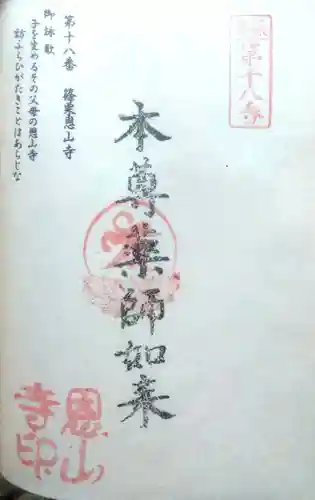 第十八番
本尊薬師如来
第十八番　篠栗恩山寺
御詠歌
子を産めるその父母の恩山寺
訪ふらひがたきことはあらじな
恩山
寺印